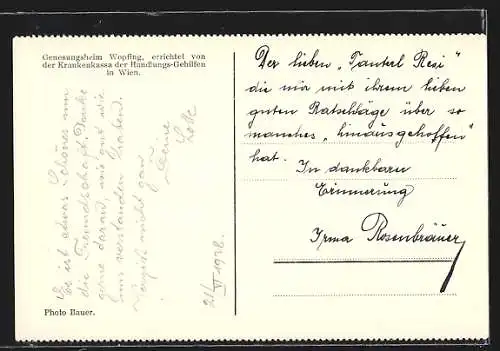 Genesungsheim Wopfing, errichtet von
der Krankenkassa der Handlungs-Gehilfen
in Wien.
Es ist etwas Schönes um
die Freundschaft. Denke
gerne daran, wie gut wir
uns verstanden haben.
Vergiß nicht ganz
Deine
Lotte
21/VI 1938.
Photo Bauer.
Der lieben „Tanterl Resi"
die mir mit ihrem lieben
guten Ratschläge über so
manches „hinausgeholfen"
hat.
In dankbarer
Erinnerung
Irma Rosenbräuer